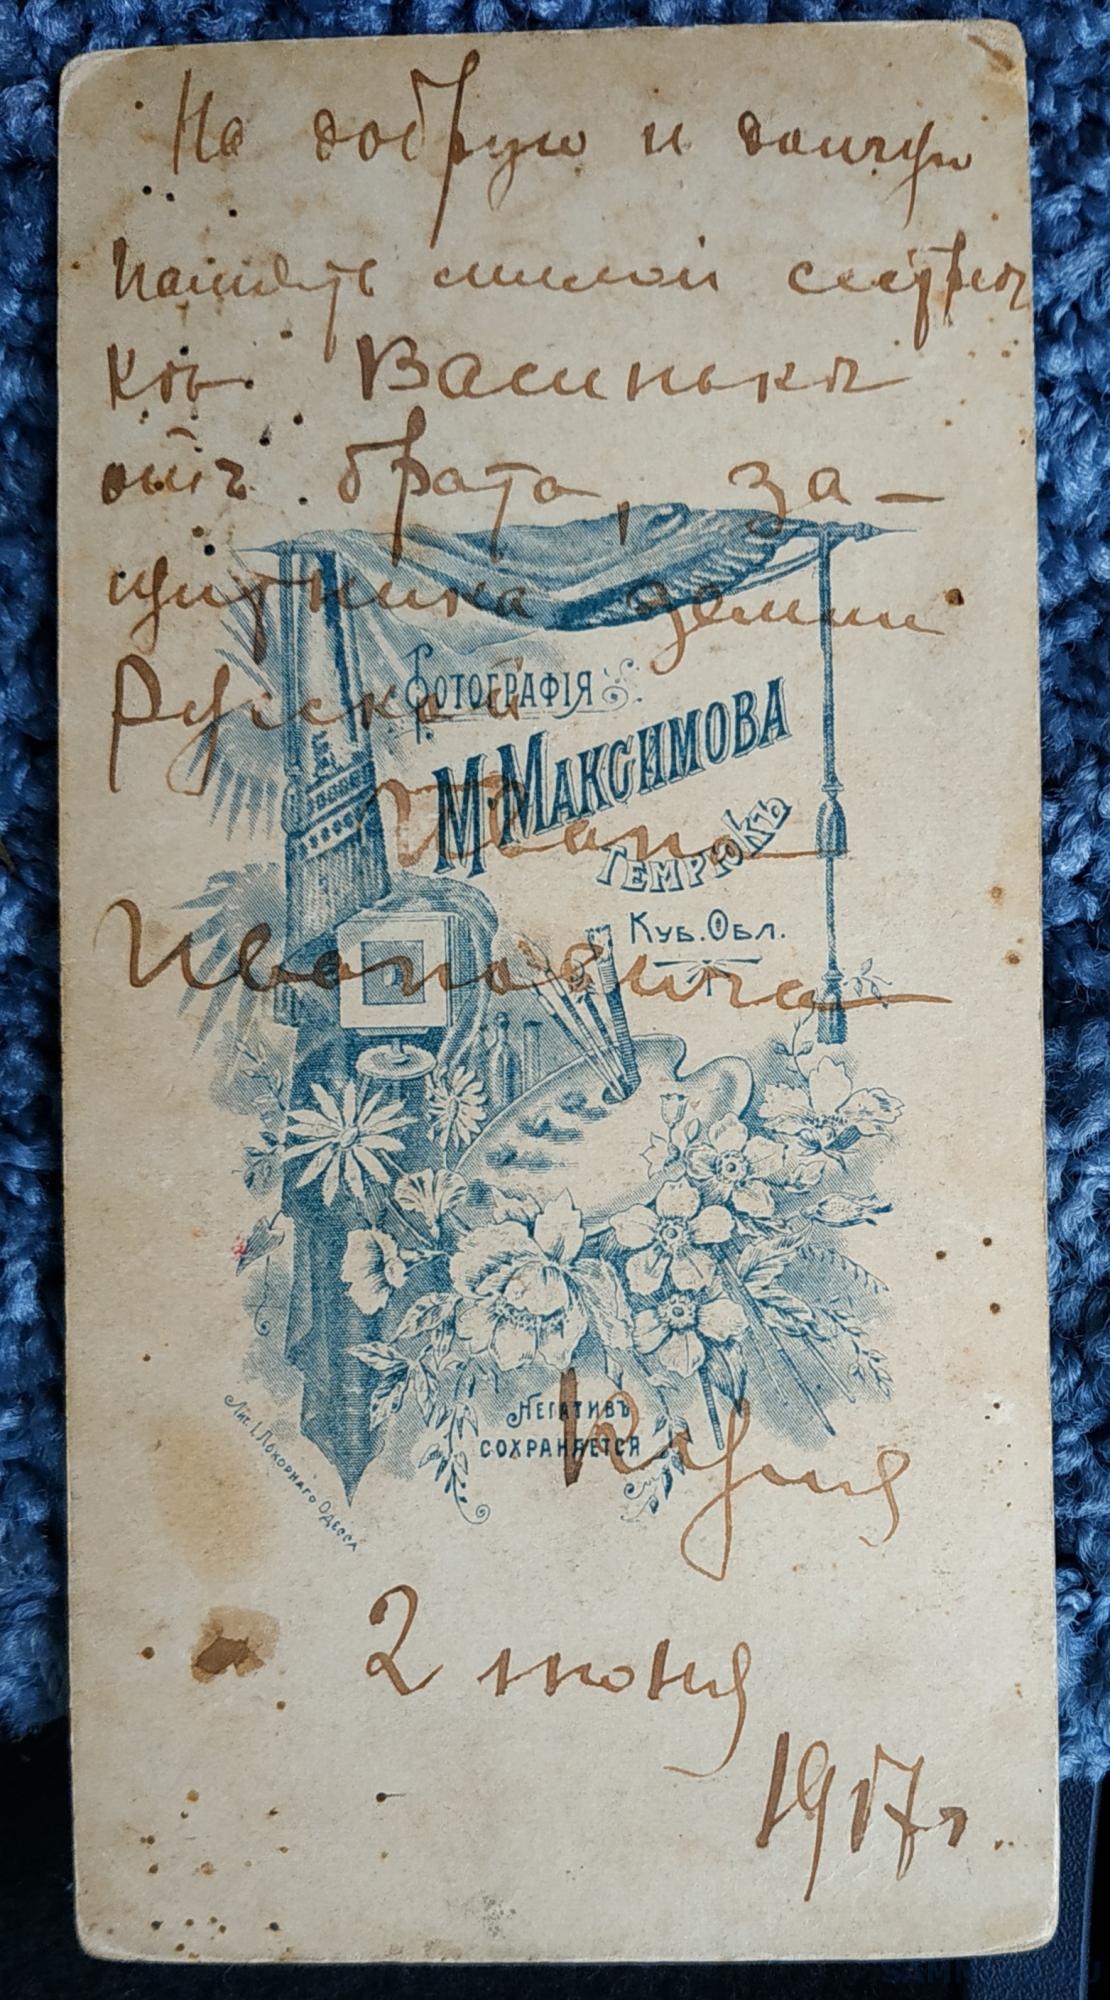 На добрую и долгую
память милой сестрѣ
отъ брата, за-
щитника земли
Руской
Ивана
Ивановича
ФОТОГРАФІЯ
М. МАКСИМОВА
ТЕМРЮКЪ
КУБ. ОБЛ.
НЕГАТИВЪ
СОХРАНЯЕТСЯ
Лит. І. Покорнаго Одесса
2 июня
1917 г.